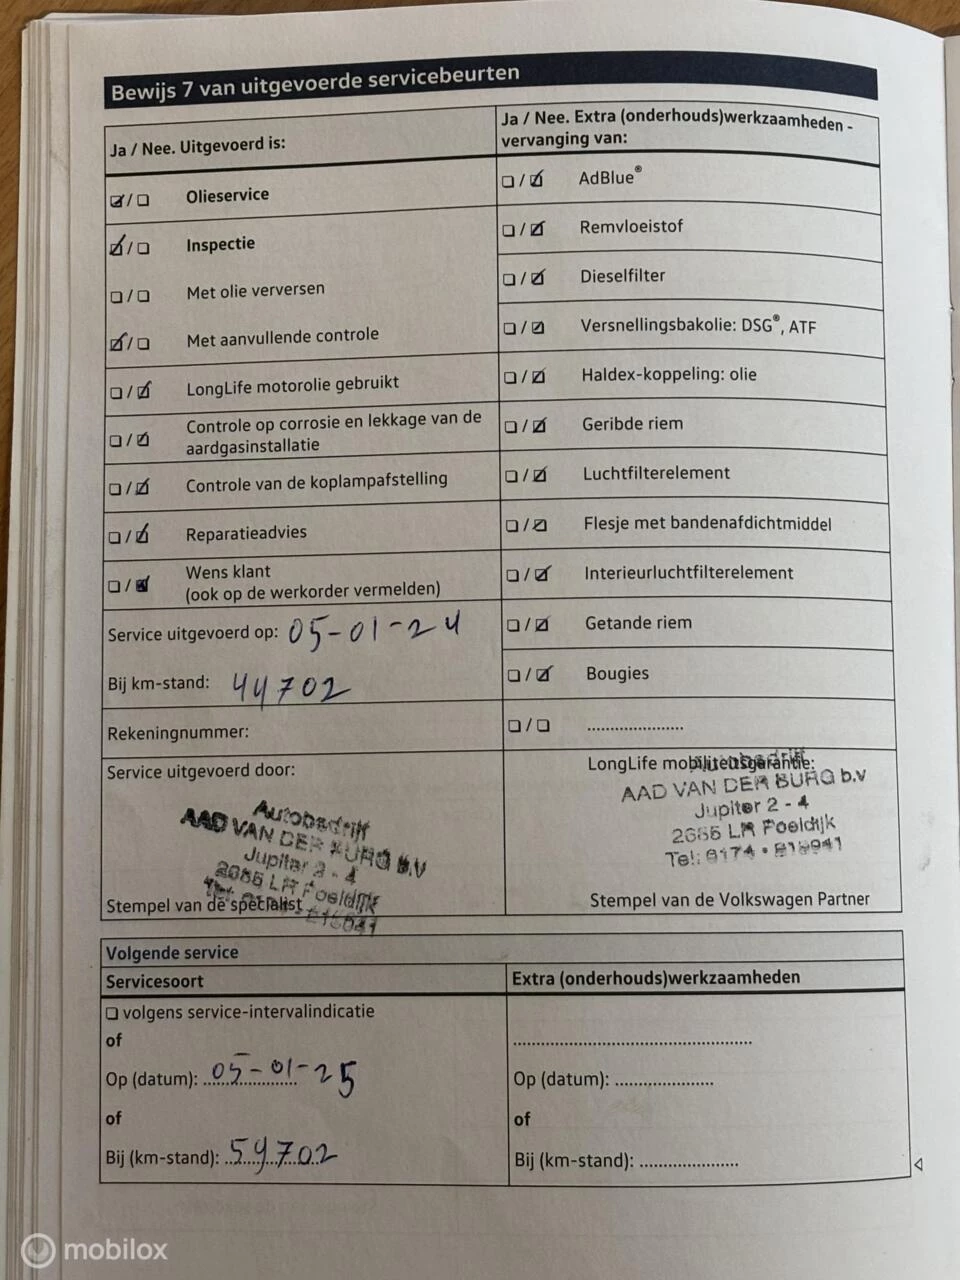 Bewijs 7 van uitgevoerde servicebeurten
Ja / Nee. Uitgevoerd is:
☑/☐ Olieservice
☑/☐ Inspectie
☐/☐ Met olie verversen
☑/☐ Met aanvullende controle
☐/☑ LongLife motorolie gebruikt
☐/☑ Controle op corrosie en lekkage van de
aardgasinstallatie
☐/☑ Controle van de koplampafstelling
☐/☑ Reparatieadvies
☐/☑ Wens klant
(ook op de werkorder vermelden)
Service uitgevoerd op: 05-01-24
Bij km-stand: 44702
Rekeningnummer:
Ja / Nee. Extra (onderhouds)werkzaamheden -
vervanging van:
☐/☑ AdBlue®
☐/☑ Remvloeistof
☐/☑ Dieselfilter
☐/☑ Versnellingsbakolie: DSG®, ATF
☐/☑ Haldex-koppeling: olie
☐/☑ Geribde riem
☐/☑ Luchtfilterelement
☐/☑ Flesje met bandenafdichtmiddel
☐/☑ Interieurluchtfilterelement
☐/☑ Getande riem
☐/☑ Bougies
☐/☐ ......................
Service uitgevoerd door:
Autobedrijf
AAD VAN DER BURG b.v
Jupiter 2 - 4
2685 LR Poeldijk
Stempel van de specialist
LongLife mobiliteitsgarantie:
Autobedrijf
AAD VAN DER BURG b.v
Jupiter 2 - 4
2685 LR Poeldijk
Tel: 0174 -
Stempel van de Volkswagen Partner
Volgende service
Servicesoort
☐ volgens service-intervalindicatie
of
Op (datum): 05-01-25
of
Bij (km-stand): 59702
Extra (onderhouds)werkzaamheden
......................................................
Op (datum): ......................
of
Bij (km-stand): ......................
mobilox